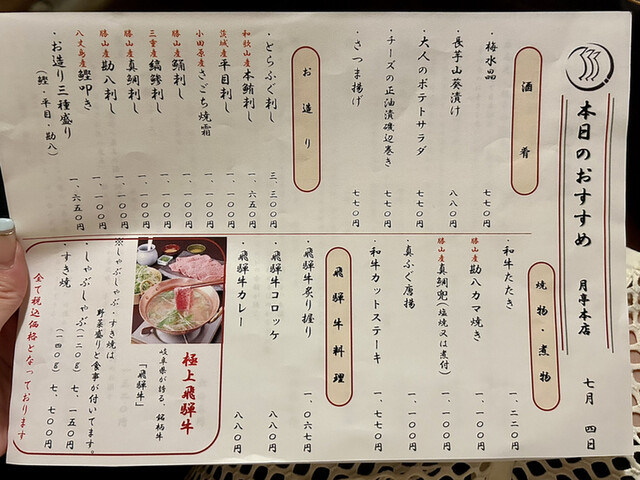 本日のおすすめ
月亭本店
七月 四日
酒肴
・梅水晶 七七〇円
・長芋山葵漬け 八八〇円
・大人のポテトサラダ 七七〇円
・チーズの正油漬磯辺巻き 七七〇円
・さつま揚げ 七七〇円
お造り
・とらふぐ刺し 三、三〇〇円
和歌山産 ・本鮪刺し 一、六五〇円
茨城産 ・平目刺し 一、一〇〇円
小田原産 ・さごち焼霜 一、一〇〇円
勝山産 ・鯒刺し 一、一〇〇円
三重産 ・縞鯵刺し 一、一〇〇円
勝山産 ・真鯛刺し 一、一〇〇円
勝山産 ・勘八刺し 一、一〇〇円
八丈島産 ・鰹叩き 一、一〇〇円
・お造り三種盛り 一、六五〇円
(鰹・平目・勘八)
焼物・煮物
・和牛たたき 一、二二〇円
勝山産 ・勘八カマ焼き 一、一〇〇円
勝山産 ・真鯛兜(塩焼又は煮付) 一、一〇〇円
・真ふぐ唐揚 一、一〇〇円
・和牛カットステーキ 一、七七〇円
飛騨牛料理
・飛騨牛炙り握り 一、〇六七円
・飛騨牛コロッケ 八八〇円
・飛騨牛カレー 八八〇円
極上飛騨牛
岐阜県が誇る、銘柄牛
「飛騨牛」
※しゃぶしゃぶ・すき焼は
野菜盛りと食事が付いてます。
・しゃぶしゃぶ(一二〇g) 七、一五〇円
・すき焼 (一四〇g) 七、七〇〇円
全て税込価格となっております